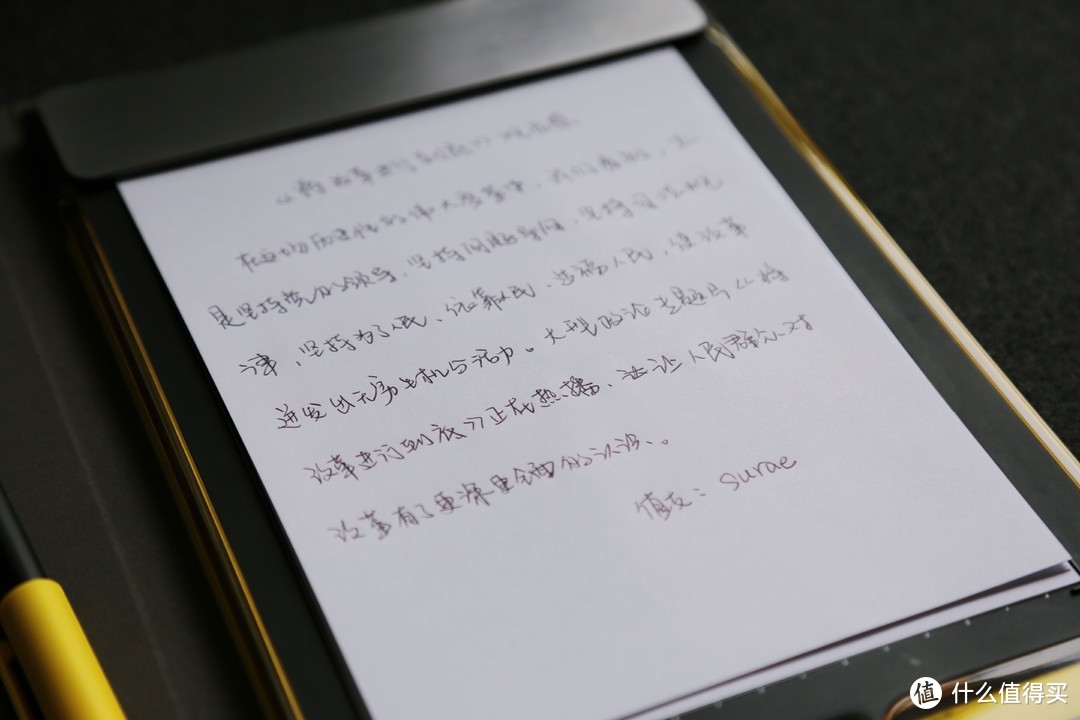 《将改革进行到底》观后感
在这场历史性的伟大变革中，我们看到，
是坚持党的领导，坚持问题导向，坚持司法规
律，坚持为了人民、依靠人民、造福人民，使改革
迸发出无穷生机与活力。大型政论专题片《将
改革进行到底》正在热播，让人民群众对
改革有了更深更全面的认识。
值友：surae
值 什么值得买